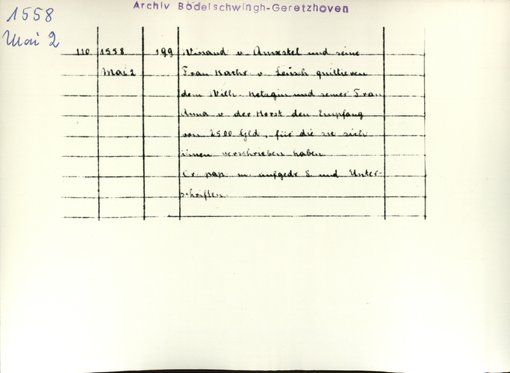 Archiv Bodelschwingh-Geretzhoven
1558
Mai 2
110 1558 199 Winand v. Amstel und seine
Mai 2 Frau Kathr. v. quittieren
dem Wilh. und seiner Frau
Anna v. der Horst den Empfang
von 2500 Gld., für die sie sich
ihnen verschrieben haben
Or. pap. m. aufgedr. S. und Unter-
schriften.